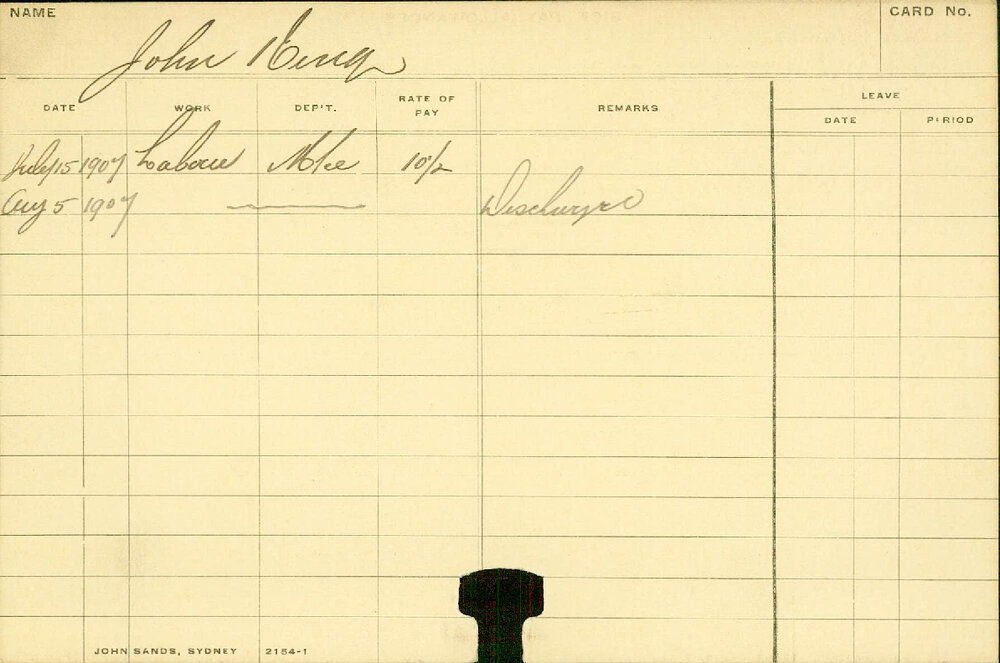 NAME
John King
CARD No.
DATE WORK DEP'T. RATE OF PAY REMARKS LEAVE
DATE PERIOD
July 15 1907 Labour Mtce 10/2
Aug 5 1907 Discharged
JOHN SANDS, SYDNEY 2154-1